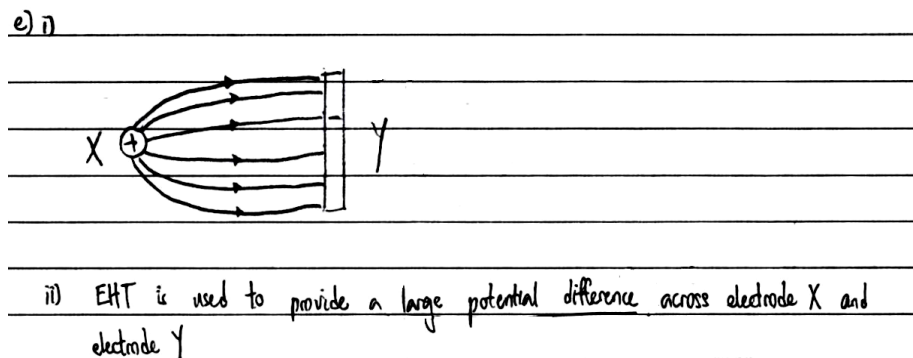 e) i)
X + Y
ii) EHT is used to provide a large potential difference across electrode X and
electrode Y